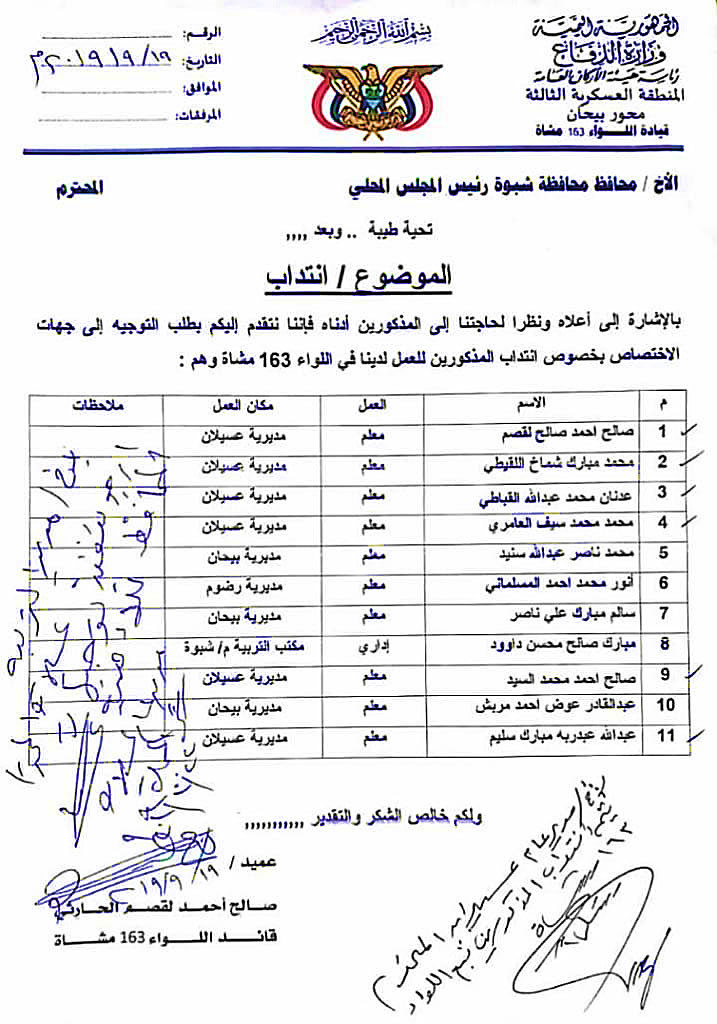 بسم الله الرحمن الرحيم
الجمهورية اليمنية
وزارة الدفاع
رئاسة هيئة الأركان العامة
المنطقة العسكرية الثالثة
محور بيحان
قيادة اللواء 163 مشاة
الرقم:
التاريخ: ١٩ / ٩ / ٢٠١٩م
الموافق:
المرفقات:
الأخ / محافظ محافظة شبوة رئيس المجلس المحلي المحترم
تحية طيبة .. وبعد ,,,,
الموضوع / انتداب
بالإشارة إلى أعلاه ونظرا لحاجتنا إلى المذكورين أدناه فإننا نتقدم إليكم بطلب التوجيه إلى جهات
الاختصاص بخصوص انتداب المذكورين للعمل لدينا في اللواء 163 مشاة وهم :
م الاسم العمل مكان العمل ملاحظات
1 صالح احمد صالح لقصم معلم مديرية عسيلان
2 محمد مبارك شماخ اللقيطي معلم مديرية عسيلان
3 عدنان محمد عبدالله القباطي معلم مديرية عسيلان
4 محمد محمد سيف العامري معلم مديرية عسيلان
5 محمد ناصر عبدالله سنيد معلم مديرية بيحان
6 أنور محمد احمد المسلماني معلم مديرية رضوم
7 سالم مبارك علي ناصر معلم مديرية بيحان
8 مبارك صالح محسن داوود إداري مكتب التربية م/ شبوة
9 صالح احمد محمد السيد معلم مديرية عسيلان
10 عبدالقادر عوض احمد مربش معلم مديرية بيحان
11 عبدالله عبدربه مبارك سليم معلم مديرية عسيلان
ولكم خالص الشكر والتقدير ,,,,,,,,,,,
عميد /
١٩ / ٩ / ٢٠١٩
صالح أحمد لقصم الحارثي
قائد اللواء 163 مشاة
مدير عام المحترم
انتداب المذكورين اللواء
١٦٣ مشاة